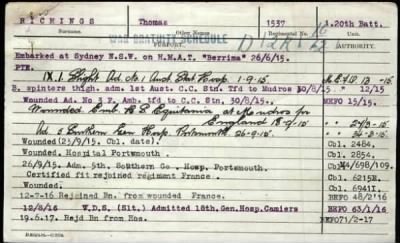 RICHINGS Thomas 1537 1.20th Batt.
Surname. Other Names. Regimental No.
WAR GRATUITY SCHEDULE
REPORT. AUTHORITY.
Embarked at Sydney N.S.W. on H.M.A.T. "Berrima" 26/6/15.
PTE.
Slight Ad. No 1 Aust Stat Hosp 1-9-15.
B. spinters thigh. adm. 1st Aust. C.C. Stn. Tfd to Mudros 30/8/15. 12/15
Wounded Ad. No 3 F. Amb. tfd to C.C. Stn. 30/8/15. MEFO 15/15.
Wounded. Emb. H.S. Aquitania at Mudros for
England 18-9-15
Ad 5 Southern Gen Hosp. Portsmouth. 26-9-15.
Wounded (25/9/15. Cbl. date). Cbl. 2484.
Wounded. Hospital Portsmouth. Cbl. 2854.
26/9/15. Adm. 5th. Southern Ge. Hosp. Portsmouth.
Certified fit rejoined regimant France. Cbl. 6215E.
Wounded. Cbl. 6941I.
12-7-16 Rejoined Bn from wounded France. BEFO 48/2'16
12/8/16 W.D.S. (Slt.) Admitted 18th.Gen.Hosp.Camiers BEFO 63/1/16
19.6.17. Rejd Bn from Hos. BEFO71/2-17